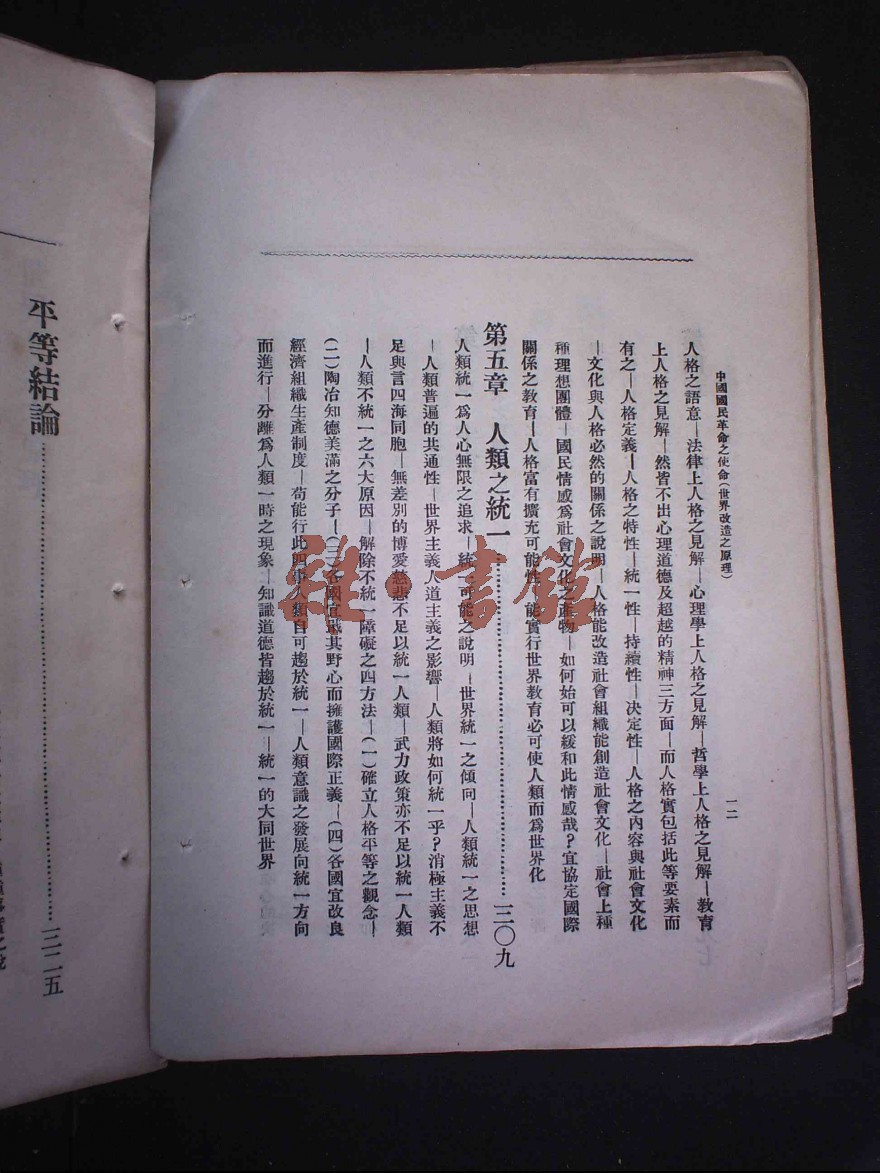 中國國民革命之使命(世界改造之原理)
一二
人格之語意—法律上人格之見解—心理學上人格之見解—哲學上人格之見解—教育
上人格之見解—然皆不出心理道德及超越的精神三方面—而人格實包括此等要素而
有之—人格定義—人格之特性—統一性—持續性—決定性—人格之內容與社會文化
—文化與人格必然的關係之說明—人格能改造社會組織能創造社會文化—社會上種
種理想團體—國民情感爲社會文化之產物—如何始可以緩和此情感哉?宜協定國際
關係之教育—人格富有擴充可能性—能實行世界教育必可使人類而爲世界化
第五章 人類之統一……三〇九
人類統一爲人心無限之追求—統一可能之說明—世界統一之傾向—人類統一之思想
—人類普遍的共通性—世界主義人道主義之影響—人類將如何統一乎?消極主義不
足與言四海同胞—無差別的博愛慈悲不足以統一人類—武力政策亦不足以統一人類
—人類不統一之六大原因—解除不統一障礙之四方法—(一)確立人格平等之觀念—
(二)陶冶知德美滿之分子—(三)各國宜戢其野心而擁護國際正義—(四)各國宜改良
經濟組織生產制度—苟能行此四事人類自可趨於統一—人類意識之發展向統一方向
而進行—分離爲人類一時之現象—知識道德皆趨於統一—統一的大同世界
平等結論……三二五
雜·書館